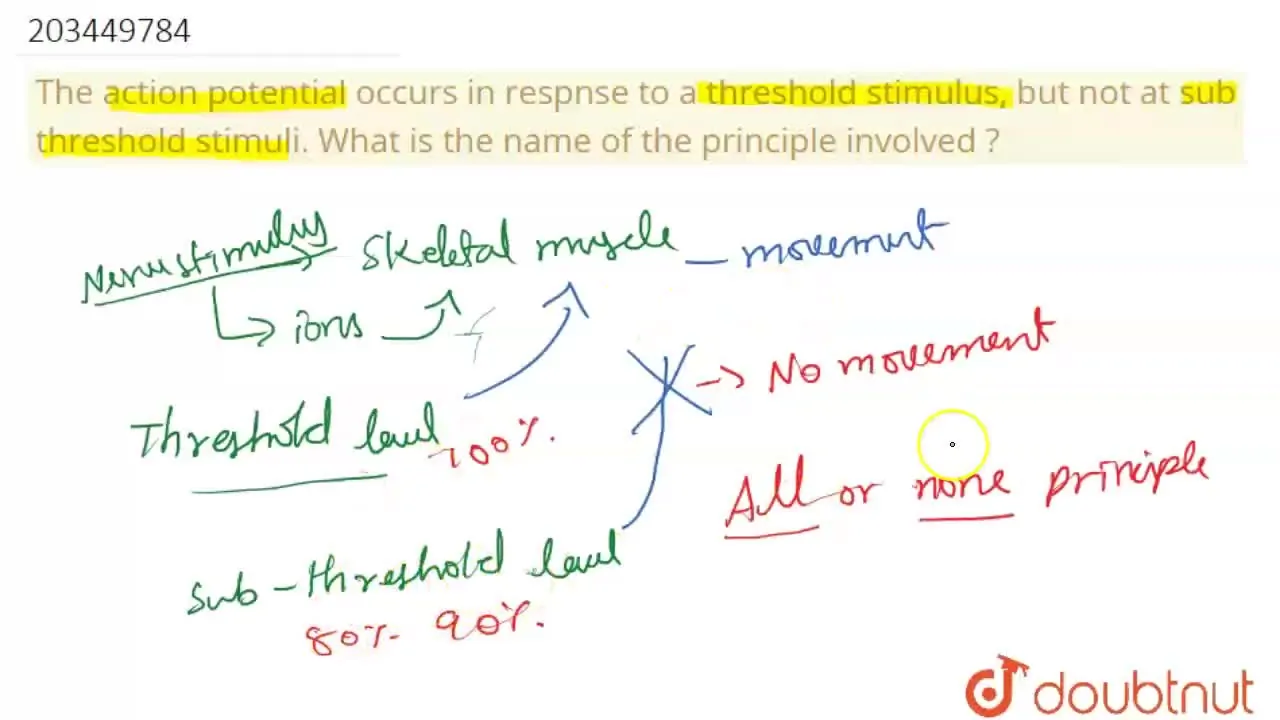 203449784
The action potential occurs in respnse to a threshold stimulus, but not at sub
threshold stimuli. What is the name of the principle involved ?
Nerve stimulus Skeletal muscle - movement
ions
No movement
Threshold level 100%.
All or none principle
Sub-threshold level
80%. 90%.
doubtnut